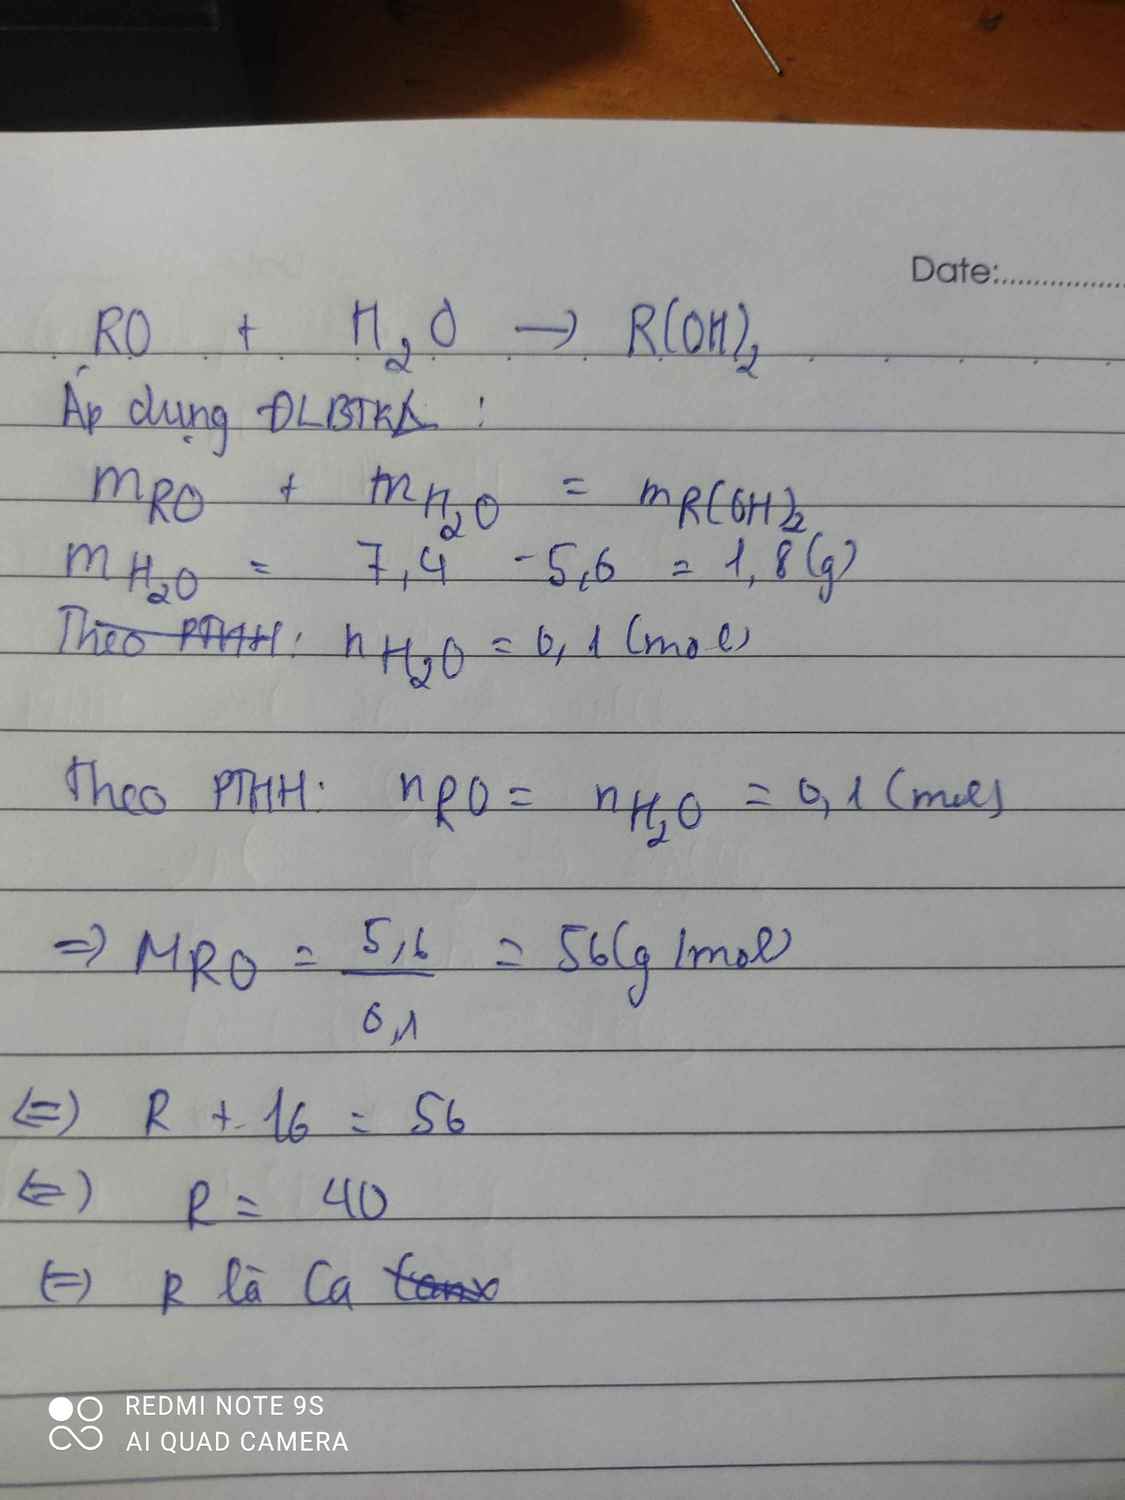 Date:
RO + H₂O → R(OH)₂
Áp dụng ĐLBTKL :
mRO + mH₂O = mR(OH)₂
mH₂O = 7,4 - 5,6 = 1,8 (g)
Theo PTHH: nH₂O = 0,1 (mol)
Theo PTHH: nRO = nH₂O = 0,1 (mol)
=> MRO = 5,6 / 0,1 = 56 (g/mol)
(=) R + 16 = 56
(=) R = 40
(=) R là Ca
REDMI NOTE 9S
AI QUAD CAMERA